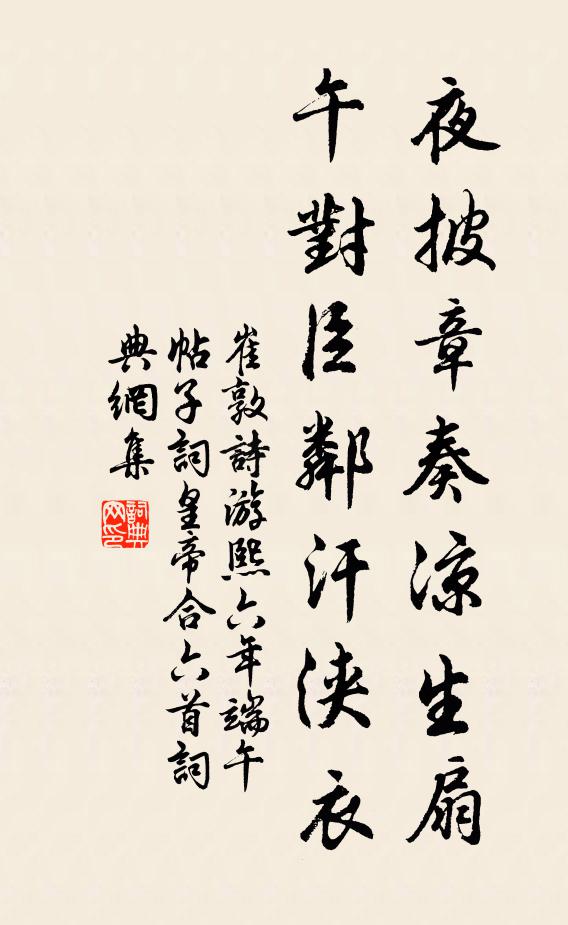 夜披章奏凉生扇
午對臣鄰汗浹衣
崔敦詩游熙六年端午
帖子詞皇帝合六首詞
典網集
詞典網印